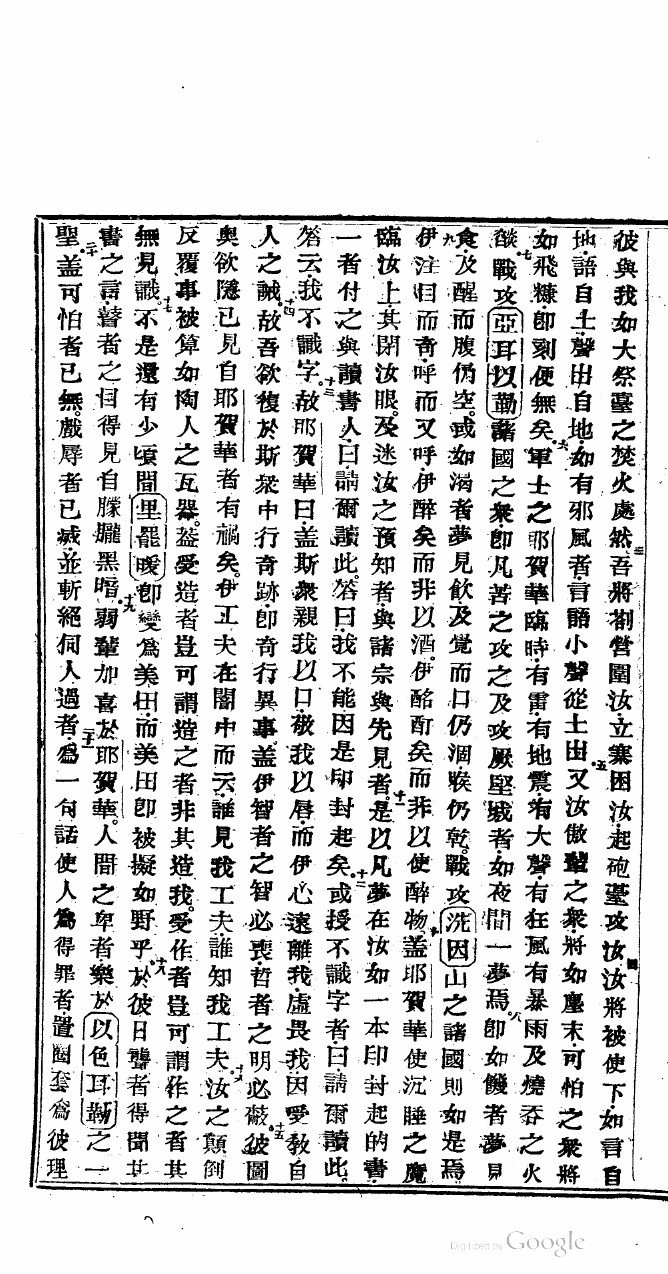 彼與我如大祭臺之焚火處然三吾將劄營圍汝立寨困汝起砲臺攻汝四汝將被使下如言自
地語自土聲出自地如有邪風者言語小聲從土出五又汝傲輩之衆將如塵末可怕之衆將
如飛糠卽刻便無矣六軍士之耶賀華臨時有雷有地震有大聲有狂風有暴雨及燒吞之火
燄七戰攻亞耳以勒諸國之衆卽凡苦之攻之及攻厥堅城者如夜間一夢焉八卽如饑者夢見
食及醒而腹仍空或如渴者夢見飲及覺而口仍涸喉仍乾戰攻洗因山之諸國則如是焉
九伊注目而奇呼而又呼伊醉矣而非以酒伊酩酊矣而非以使醉物十蓋耶賀華使沉睡之魔
臨汝上其閉汝眼及迷汝之預知者與諸宗與先見者十一是以凡夢在汝如一本印封起的書
一者付之與讀書人曰請爾讀此答曰我不能因是印封起矣十二或授不識字者曰請爾讀此
答云我不識字十三故耶賀華曰蓋斯衆親我以口敬我以唇而伊心遠離我虛畏我因受教自
人之誡十四故吾欲復於斯衆中行奇跡卽奇行異事蓋伊智者之智必喪哲者之明必蔽十五彼圖
奧欲隱已見自耶賀華者有禍矣伊工夫在闇中而云誰見我工夫誰知我工夫十六汝之顛倒
反覆事被算如陶人之瓦器蓋受造者豈可謂造之者非其造我受作者豈可謂作之者其
無見識十七不是還有少頃間里罷暖卽變爲美田而美田卽被擬如野乎十八於彼日聾者得聞其
書之言瞽者之目得見自朦朧黑暗十九弱輩加喜於耶賀華人間之卑者樂於以色耳勒之一
聖二十蓋可怕者已無戲辱者已滅並斬絕伺人過者二十一爲一句話使人爲得罪者置圈套爲彼理
Digitized by Google